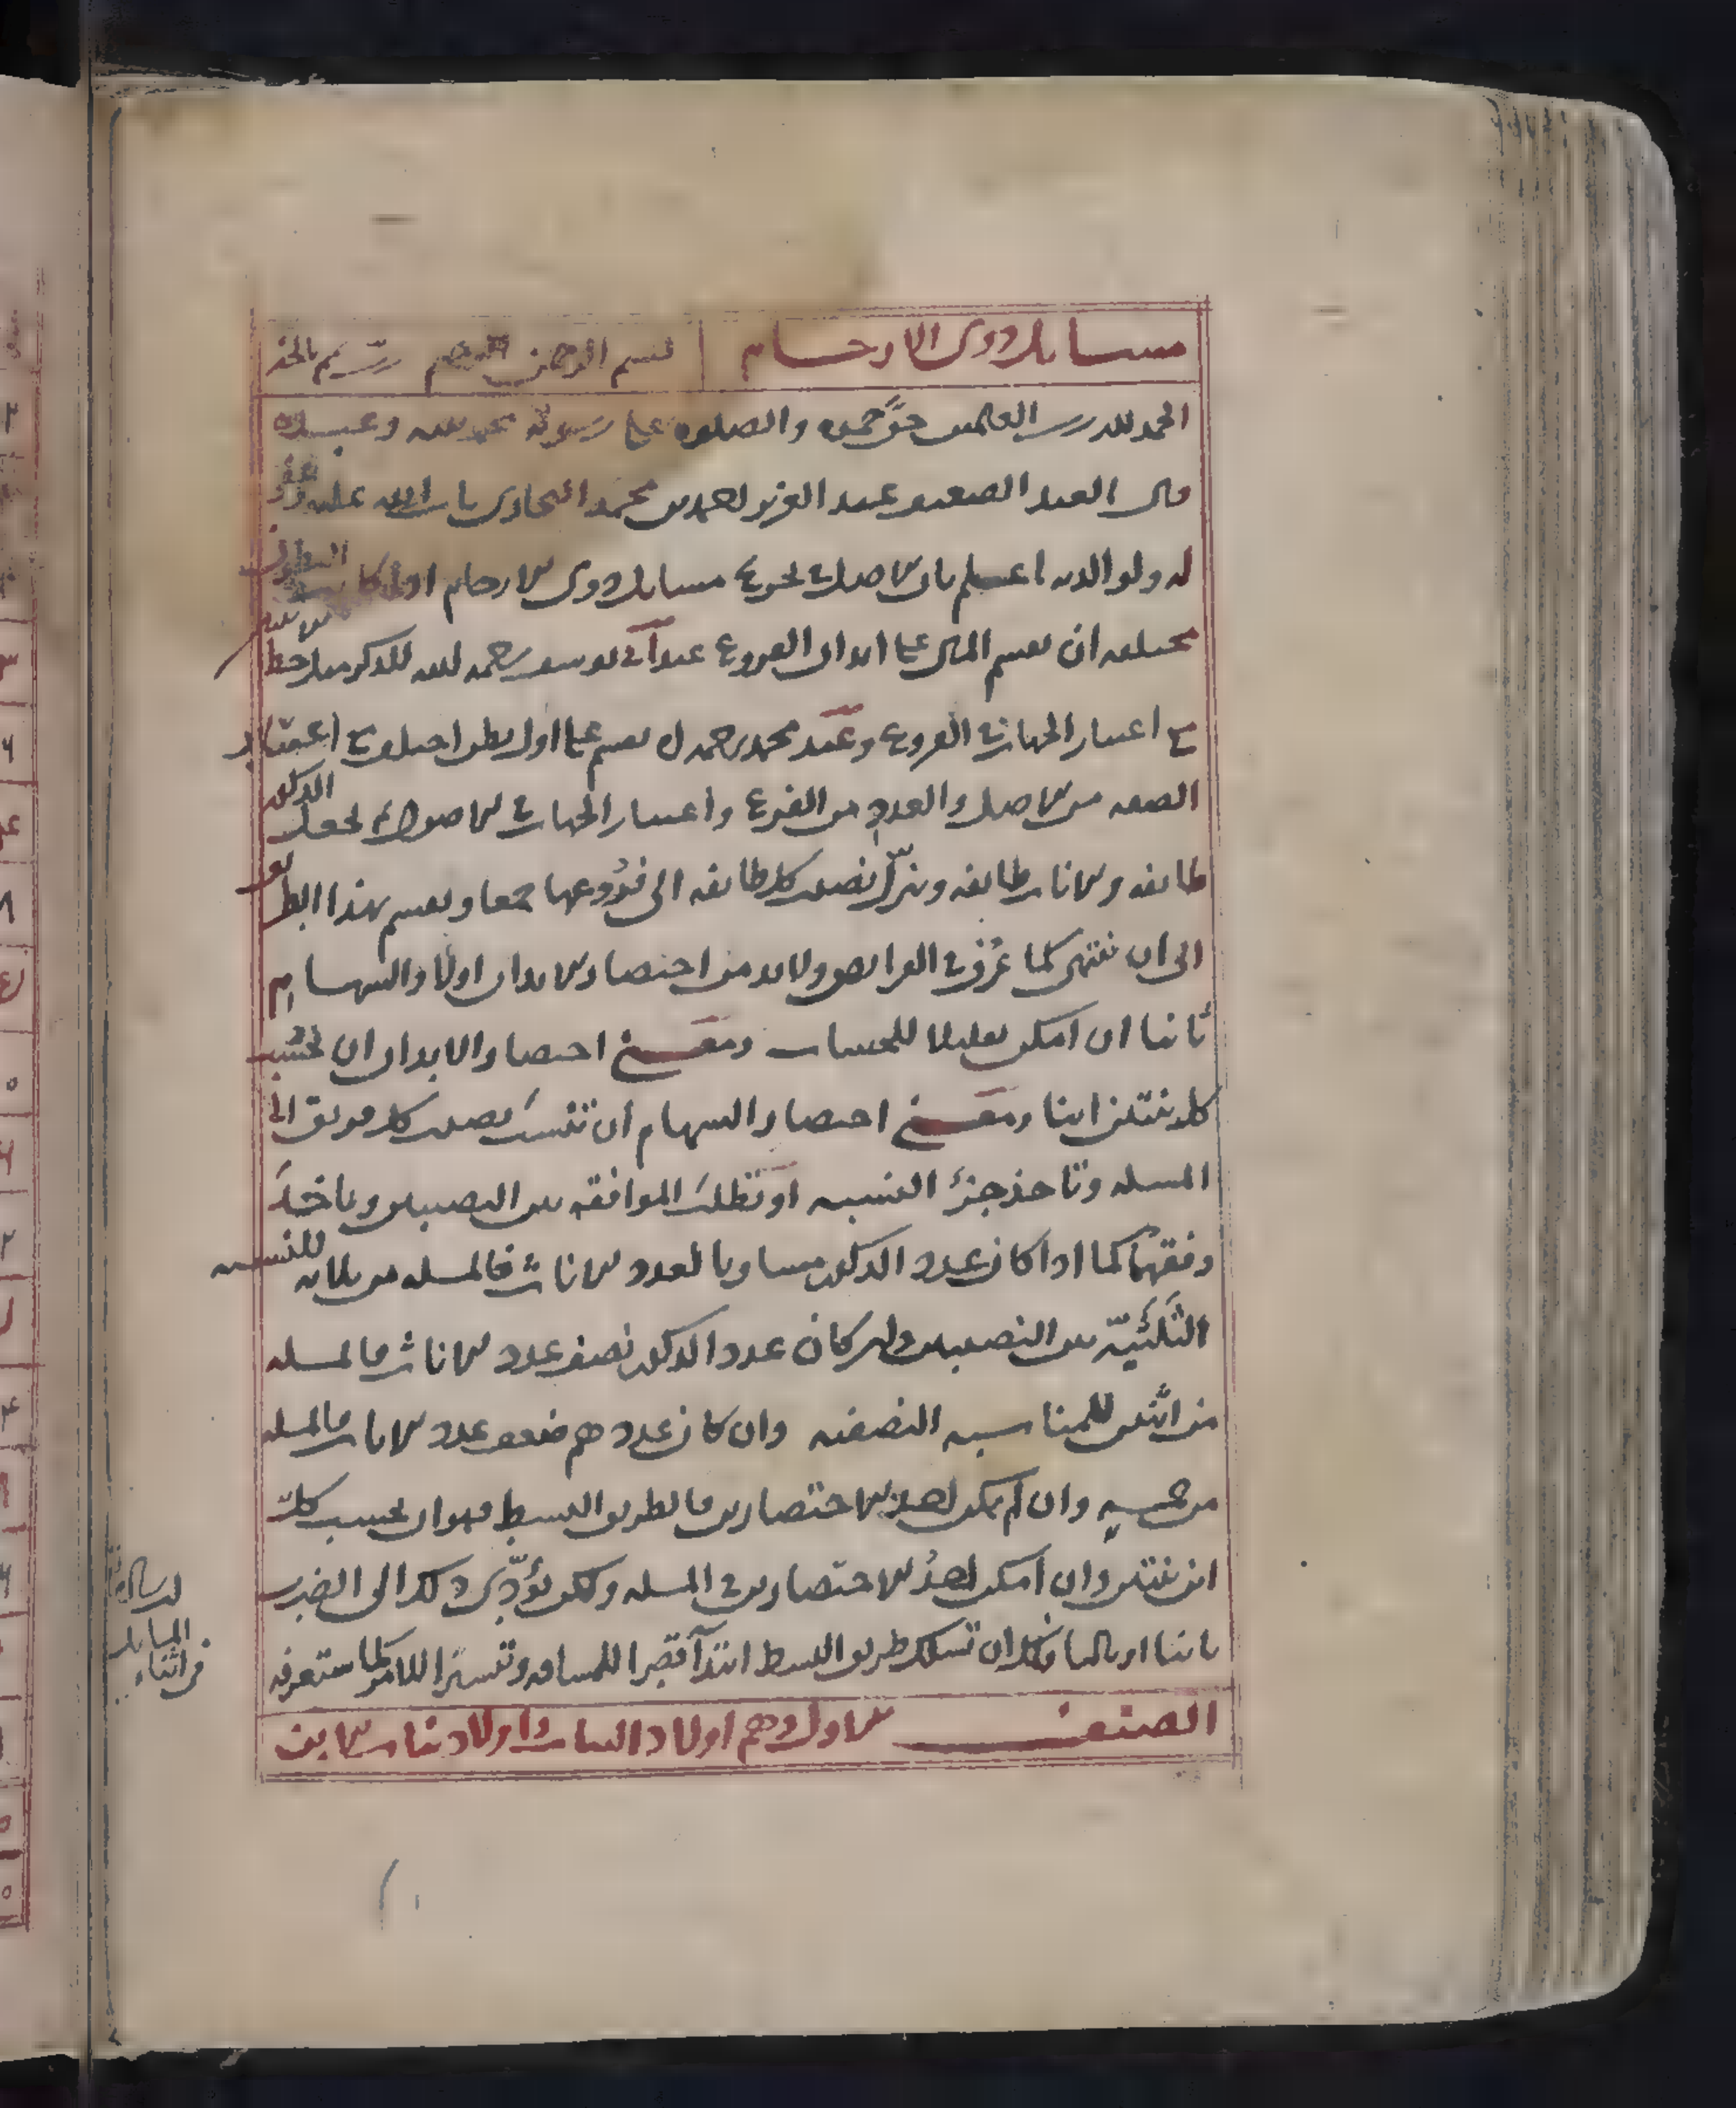 مسائل ذوى الارحام بسم الرحمن الرحيم رب تمم بالخير
الحمد لله رب العلمين حق حمده والصلوة على رسوله محمد وعبده
قال العبد الضعيف عبد العزيز بن احمد بن محمد البخارى تاب الله عليه وغفر
له ولوالديه اعلم بان الاصل فى تخريج مسايل ذوى الارحام اذا كانت البطون
مختلفة ان يقسم المال على ابدان الفروع عند ابى يوسف رحمه الله للذكر مثل حظ الانثيين
مع اعتبار الجهات فى الفروع وعند محمد رحمه الله يقسم على اول بطن اختلف مع اعتبار
الصفة من الاصل والعدد من الفرع واعتبار الجهات فى الاصول ثم تجعل الذكور
طائفه والاناث طائفه وينزل نصيب كل طائفه الى فروعها جمعا ويقسم بهذا الطريق
الى ان تنتهى كما عرف فى الفرائض ولا بد من اختصار الابدان اولا والسهام
ثانيا ان امكن تقليلا للحساب ومعنى اختصار الابدان ان تحسب
كل بنتين ابنا ومعنى اختصار السهام ان تنسب نصيب كل فريق الى
المسله وتاخذ جزء النسبه او تطلب الموافقه بين النصيبين وتاخذ
وفقهما كما اذا كان عدد الذكور مساويا لعدد الاناث فالمسله من ثلاثه للنسبه
الثلثية بين النصيبين ولو كان عدد الذكور نصف عدد الاناث فالمسله
من اثنين للمناسبه النصفيه وان كان عددهم ضعف عدد الاناث فالمسله
من خمسه وان لم يمكن احد الاختصارين فالطريق البسط وهو ان تحسب كل
ابن بنتين وان امكن احد الاختصارين فى المسله ولكن يؤدى ذلك الى الضرب
ثانيا او ثالثا فلك ان تسلك طريق البسط ابتدآ قصرا للمسافه وتيسيرا للامر كما ستعرفه
فى اثناء المسايل
الصنف الاول وهم اولاد البنات واولاد بنات الابن